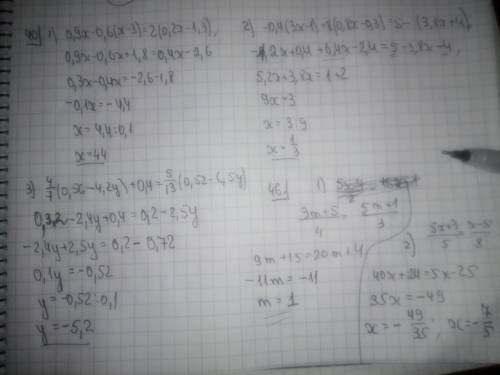 1) 0,9x-0,6(x-3)=2(0,2x-1,3),
0,9x-0,6x+1,8=0,4x-2,6
0,3x-0,4x=-2,6-1,8
-0,1x=-4,4
x=4,4:0,1
x=44
2) -0,4(3x-1)+8(0,8x-0,3)=5-(3,8x+4),
-1,2x+0,4+6,4x-2,4=5-3,8x-4,
5,2x+3,8x=1+2
9x=3
x=3:9
x=1/3
3) 4/7(0,56-4,2y)+0,4=5/13(0,52-6,5y)
0,32-2,4y+0,4=0,2-2,5y
-2,4y+2,5y=0,2-0,72
0,1y=-0,52
y=-0,52:0,1
y=-5,2
461
1)
(3m+5)/4=(5m+1)/3
9m+15=20m+4
-11m=-11
m=1
2) (5x+3)/5=(x-5)/8
40x+24=5x-25
35x=-49
x=-49/35; x=-7/5